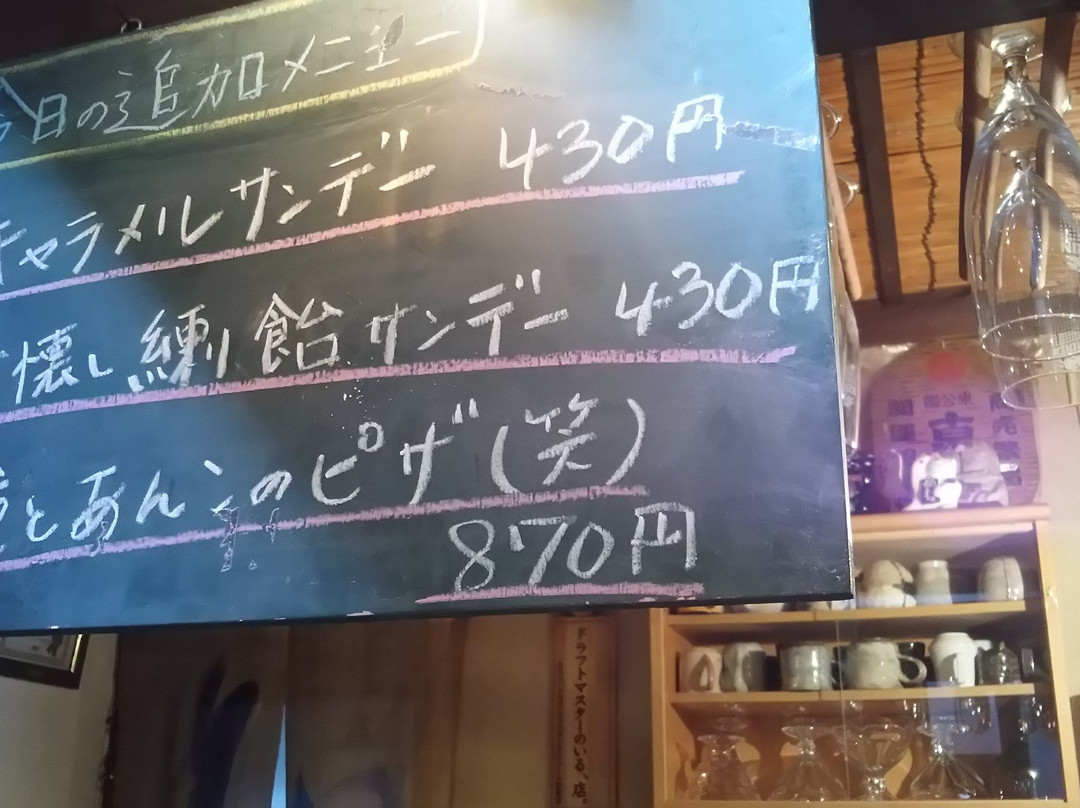 今日の追加メニュー
キャラメルサンデー 430円
懐し練り飴サンデー 430円
とあんこのピザ(笑)
870円
ドラフトマスターのいる、店。